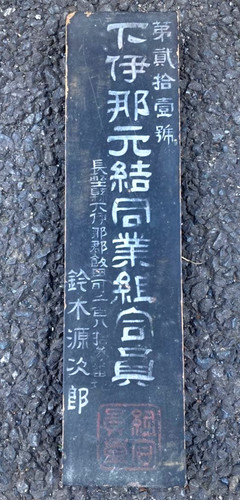 第貳拾壹號
下伊那元結同業組合員
長野縣下伊那郡飯田町
鈴木源次郎